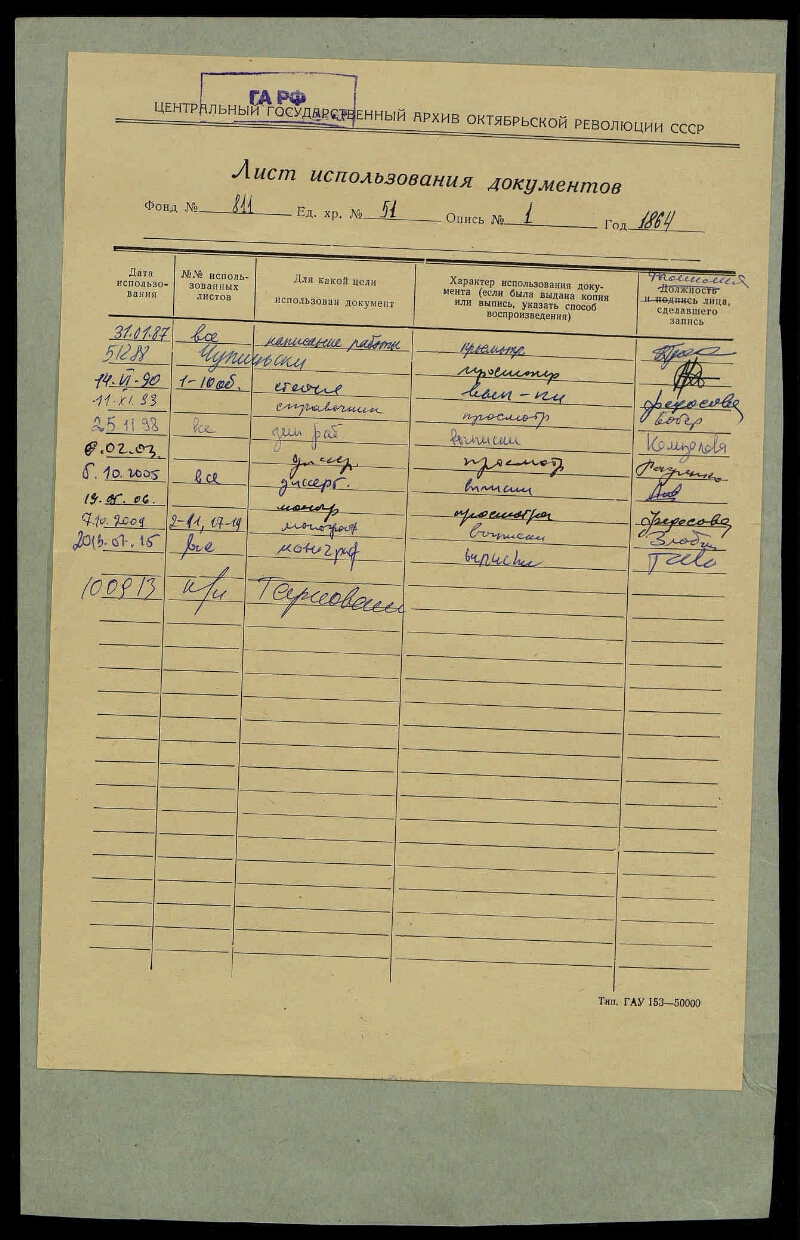 ГА РФ
ЦЕНТРАЛЬНЫЙ ГОСУДАРСТВЕННЫЙ АРХИВ ОКТЯБРЬСКОЙ РЕВОЛЮЦИИ СССР
Лист использования документов
Фонд № 811 Ед. хр. № 51 Опись № 1 Год 1864
Дата использо-вания
№№ исполь-зованных листов
Для какой цели использован документ
Характер использования доку-мента (если была выдана копия или выпись, указать способ воспроизведения)
Должность и подпись лица, сделавшего запись
31.01.87 все написание работы просмотр
5 12 88 просмотр
14.VI-90 1-10 об. статья вып-ки Федосова
11.XI.93 справочник просмотр
25.11.98 все дип раб выписки
02.03. диссер. просмотр
6.10.2005 все диссерт. выписки
19.05.06. моногр просмотр Федосова
7.10.2009 2-11, 17-19 моногр выписки
2013.07.15 все моногр выписки
100913
Тип. ГАУ 153—50000